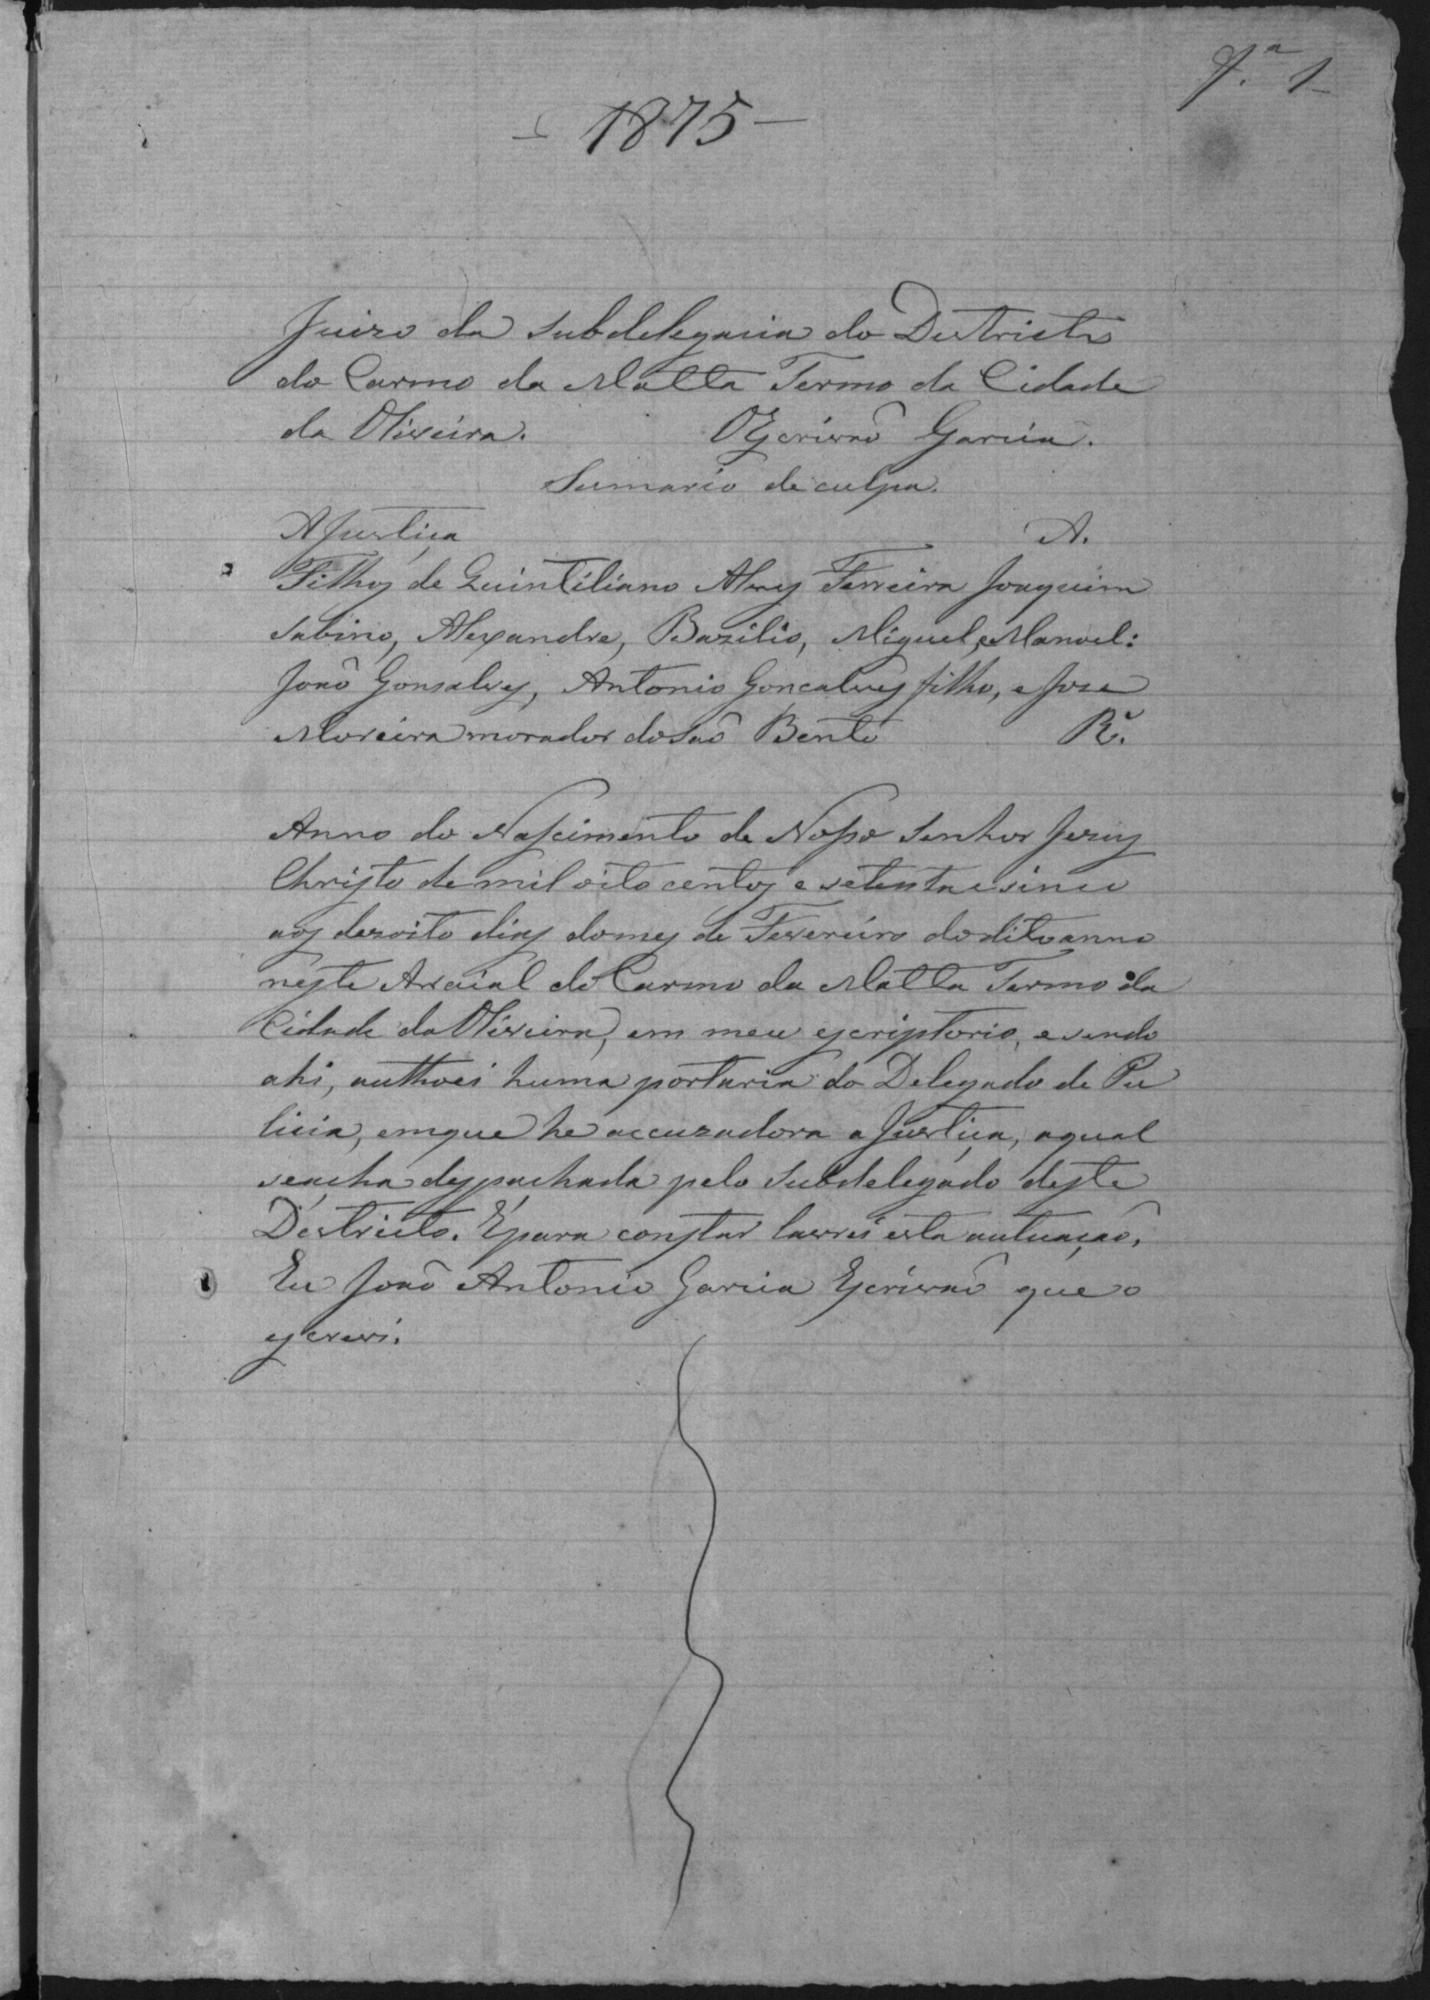 f.ª 1
- 1875 -
Juizo da Subdelegacia do Destricto
do Carmo da Matta Termo da Cidade
da Oliveira. O Escrivaõ Garcia.
Sumario de culpa.
A Justiça A.
Filhos de Quintiliano Alves Ferreira Joaquim
Sabino, Alexandre, Bazilio, Miguel, e Manoel:
Joaõ Gonsalves, Antonio Gonçalves filho, e Joze
Moreira morador do Saõ Bento R.
Anno do Nascimento de Nosso Senhor Jezus
Christo de mil oito centos e setenta e sinco
aos dezoito dias do mes de Fevereiro do dito anno
neste Arraial do Carmo da Matta Termo da
Cidade da Oliveira, em meu escriptorio, e sendo
ahi, authoei huma portaria do Delegado de Pu
licia, em que he accuzadora a Justiça, a qual
se acha despachada pelo Subdelegado deste
Destricto. E para constar lavrei esta autuaçaõ.
Eu Joaõ Antonio Garcia Escrivaõ que o
escrevi.